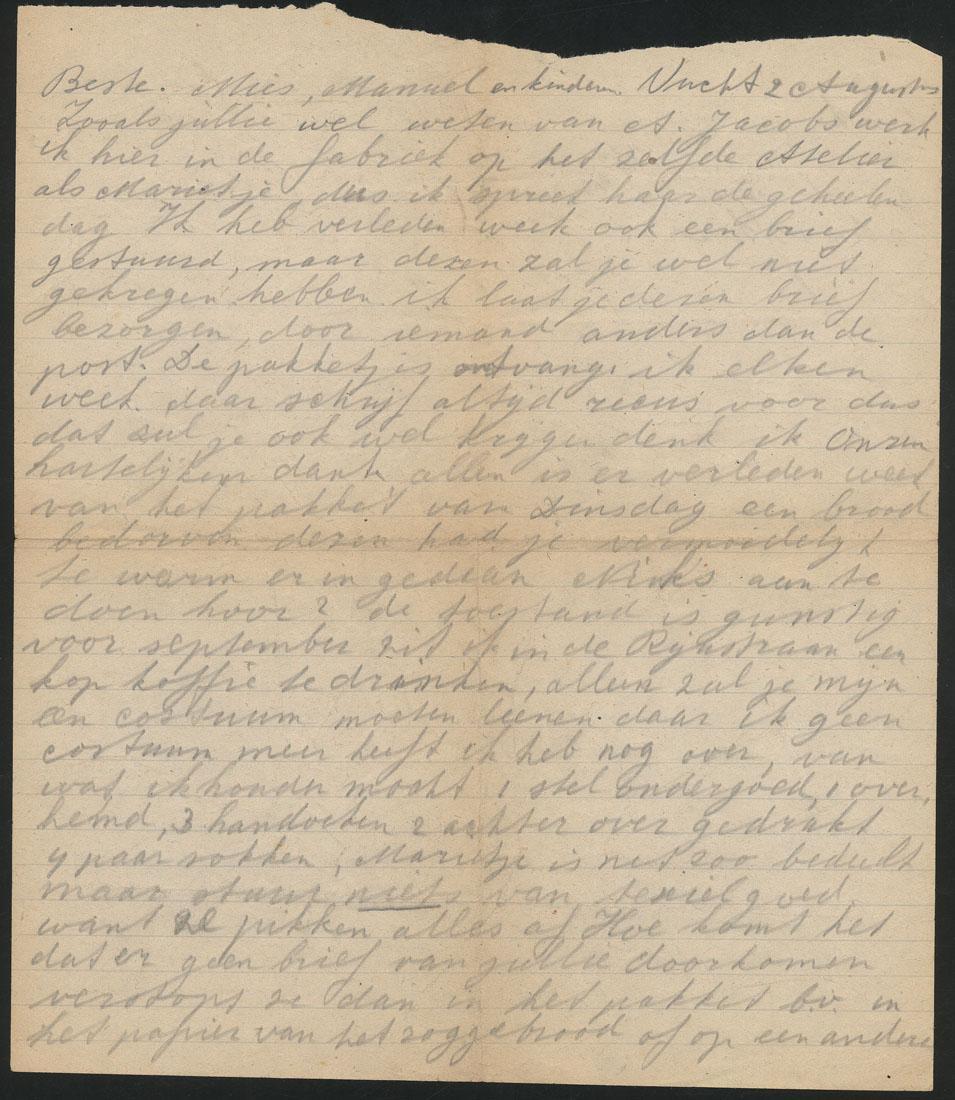 Beste. Mies, Manuel en kinderen. Vucht 2 Augustus
Zooals jullie wel weten van A. Jacobs werk
ik hier in de fabriek op het zelfde Atelier
als Marietje, dus ik spreek haar de geheelen
dag Ik heb verleden week ook een brief
gestuurd, maar dezen zal je wel niet
gekregen hebben ik laat je dezen brief
bezorgen, door iemand anders dan de
post. De pakketjes ontvang ik elken
week. daar schrijf altijd recus voor dus
dat zul je ook wel krijgen denk ik Onzen
hartelijken dank allen is er verleden week
van het pakket van Dinsdag een brood
bedorven dezen had je vermoedelijk
te warm er in gedaan Niks aan te
doen hoor? de toestand is gunstig
voor september zit ik in de Rijnstraan een
kop koffie te drinken, alleen zal je mijn
en costuum moeten leenen daar ik geen
costuum meer heeft ik heb nog over, van
wat ik houden mocht 1 stel ondergoed, 1 over,
hemd, 3 handoeken 2 achter over gedrukt
4 paar sokken, Marietje is net zoo bedeelt
maar stuur niets van textielgoed
want ze pikken alles af Hoe komt het
dat er geen brief van jullie doorkomen
verstops ze dan in het pakket b.v. in
het papier van het roggebrood of op een andere